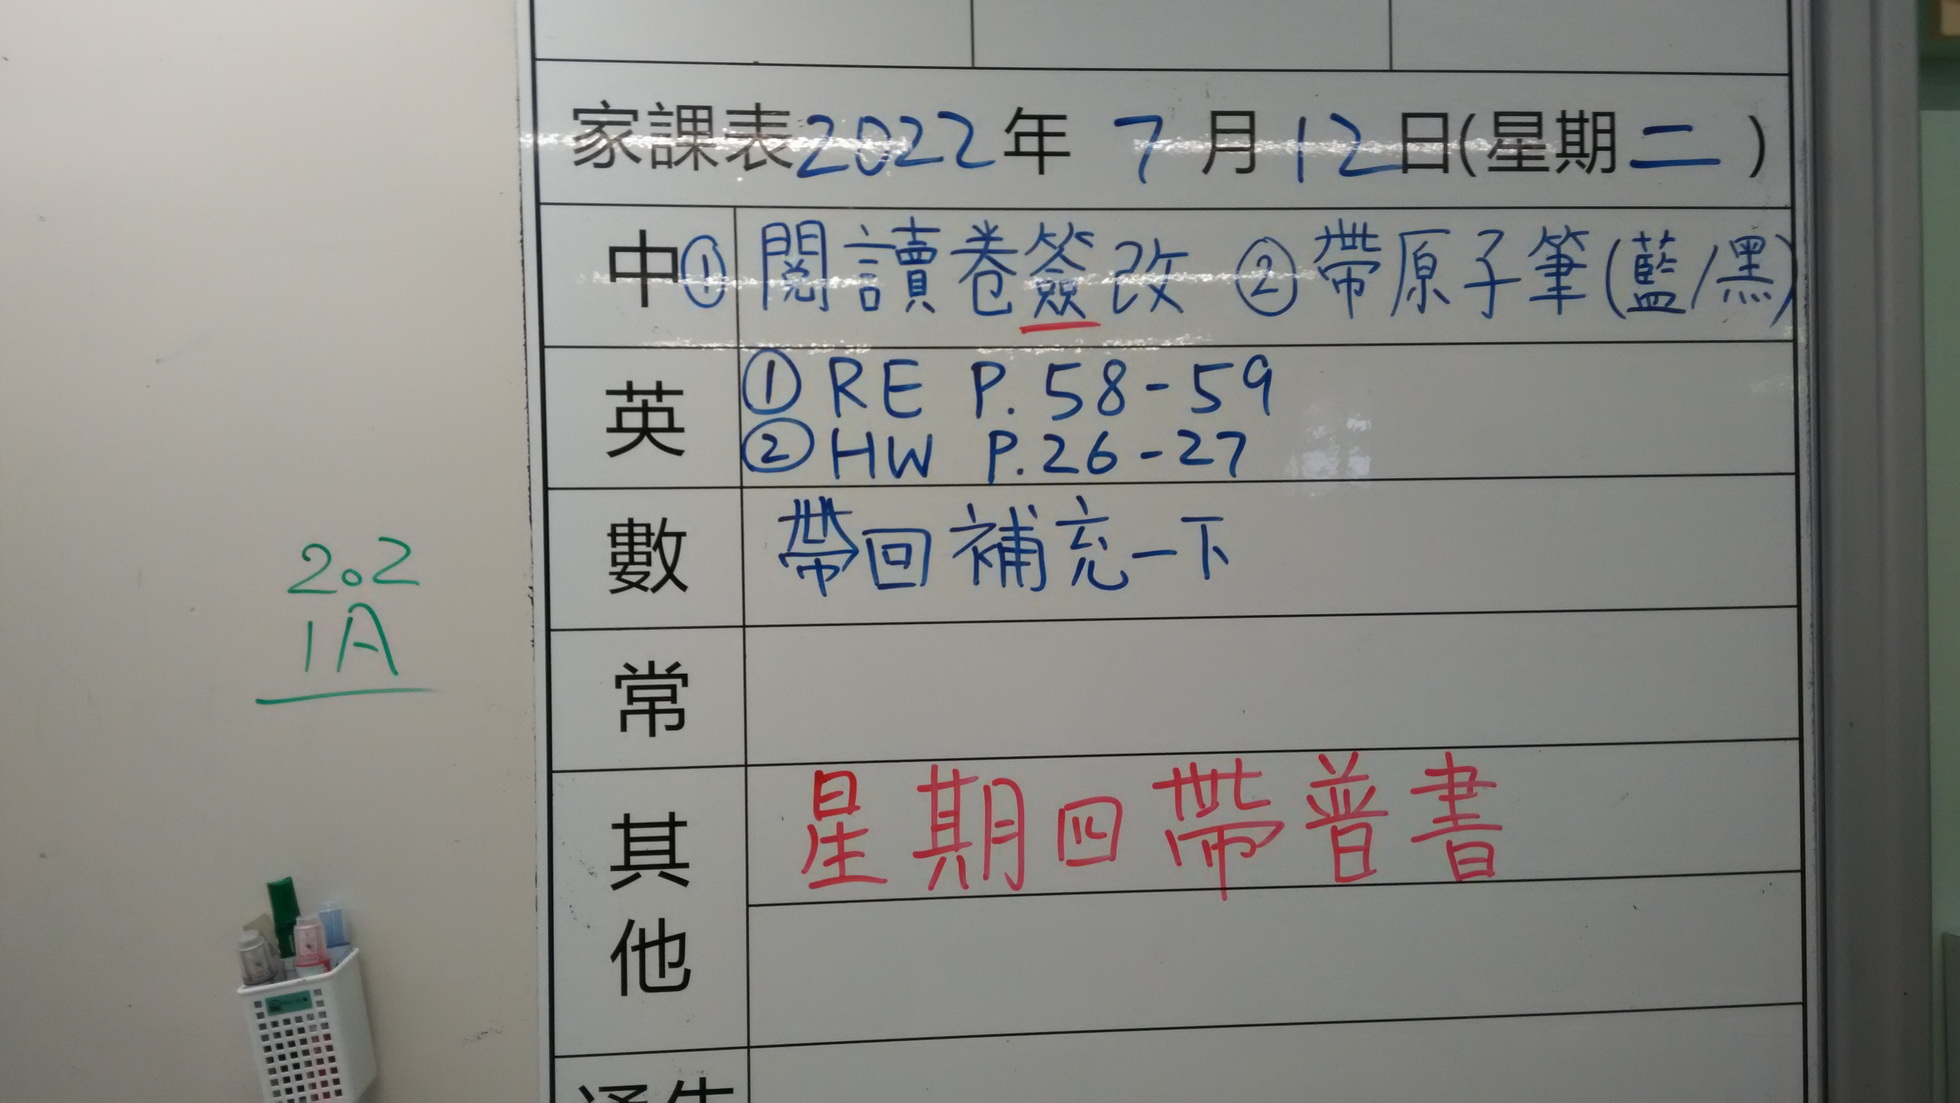 家課表2022年 7月12日(星期二)
中 ① 閱讀卷簽改 ② 帶原子筆(藍/黑)
英 ① RE P.58-59
② HW P.26-27
數 帶回補充一下
常
其他 星期四帶普書
通告
202
1A